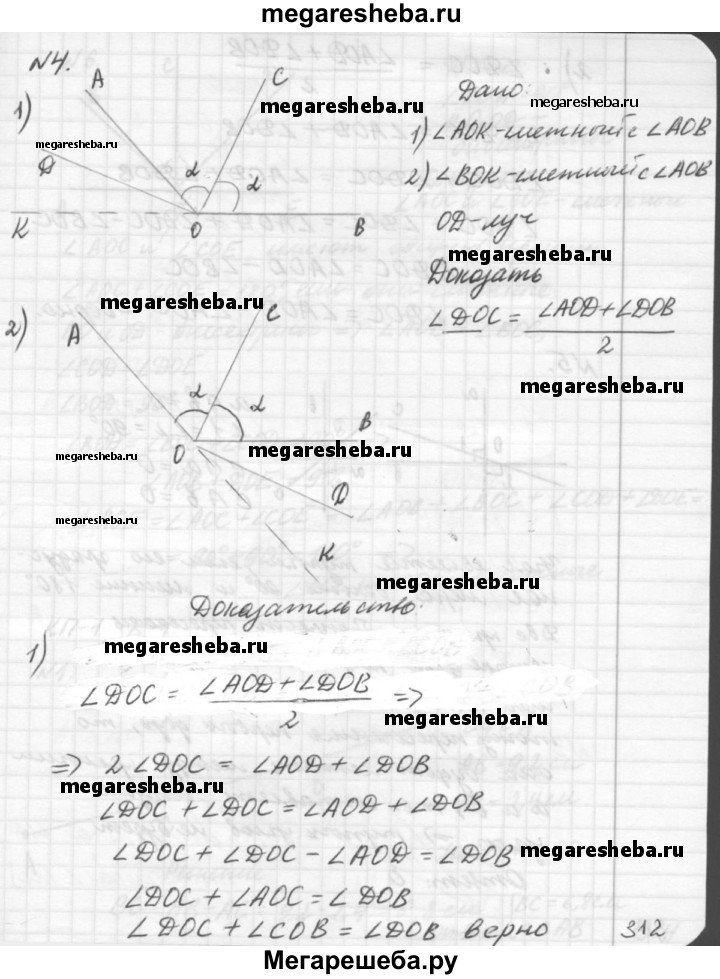 megaresheba.ru
№4.
1)
A
C
D
α
α
K
O
B
megaresheba.ru
megaresheba.ru
Дано:
megaresheba.ru
1) ∠AOK - смежный с ∠AOB
2) ∠BOK - смежный с ∠AOB
OD - луч
megaresheba.ru
Доказать
∠DOC = (∠AOD + ∠DOB) / 2
megaresheba.ru
megaresheba.ru
2)
A
C
α
α
O
B
D
K
megaresheba.ru
megaresheba.ru
megaresheba.ru
megaresheba.ru
Доказательство:
megaresheba.ru
1)
∠DOC = (∠AOD + ∠DOB) / 2 =>
megaresheba.ru
=> 2 ∠DOC = ∠AOD + ∠DOB
megaresheba.ru
∠DOC + ∠DOC = ∠AOD + ∠DOB
∠DOC + ∠DOC - ∠AOD = ∠DOB
megaresheba.ru
∠DOC + ∠AOC = ∠DOB
∠DOC + ∠COB = ∠DOB верно
312
Мегарешеба.ру